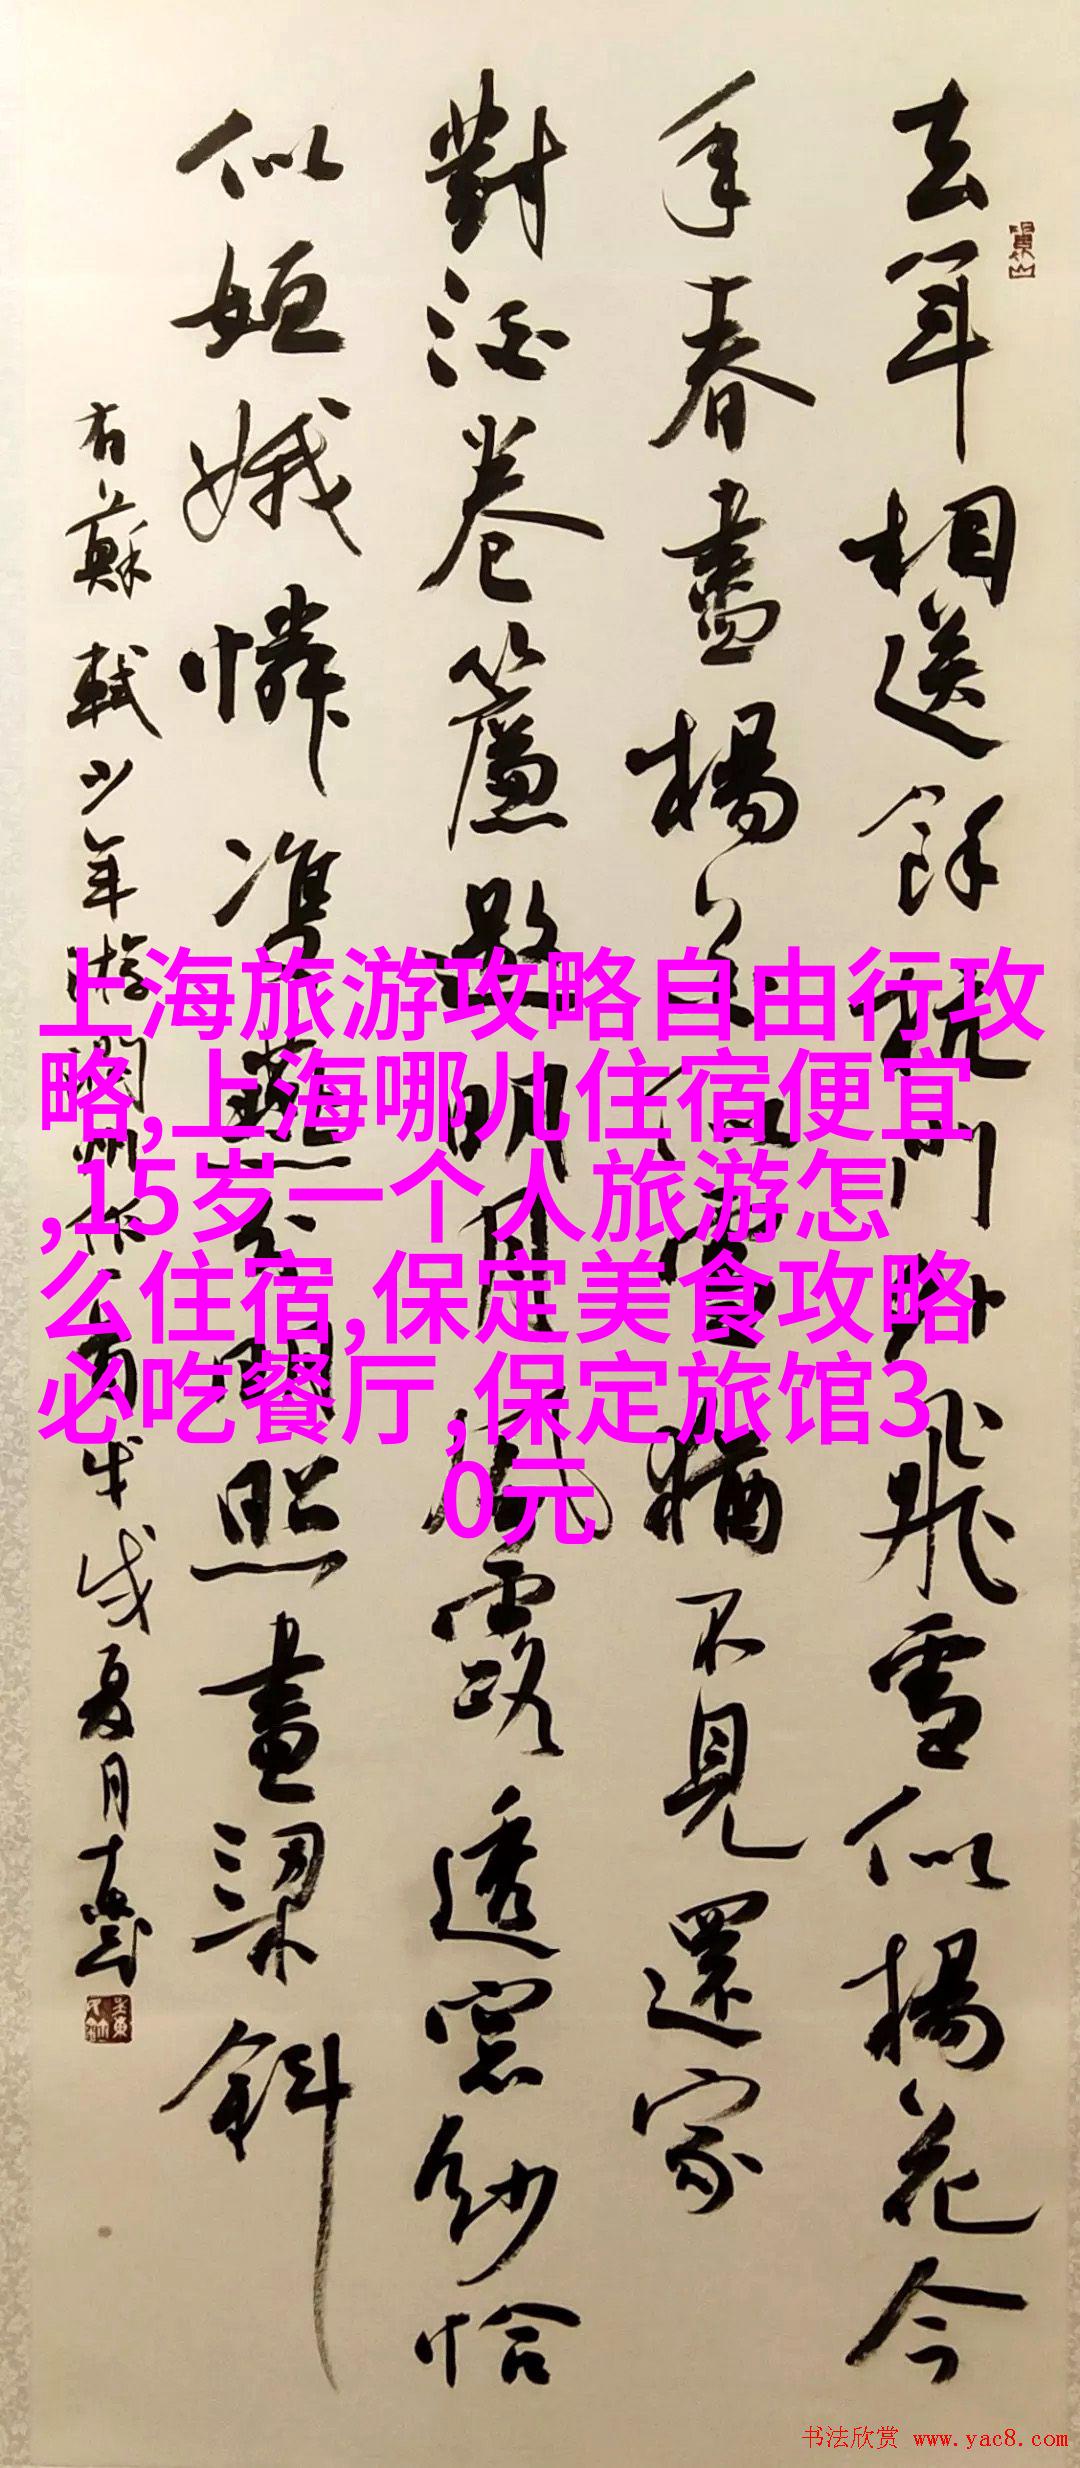 去年相送餘杭門外飛雪似楊花今
年春盡楊花似雪猶不見還家
對酒卷簾邀明月風露透窓紗恰
似姮娥憐雙燕分明照畫梁斜
右蘇軾少年游潤州作 戌夏月
上海旅游攻略自由行攻
略,上海哪儿住宿便宜
,15岁一个人旅游怎
么住宿,保定美食攻略
必吃餐厅,保定旅馆3
0元
书法欣赏 www.yac8.com